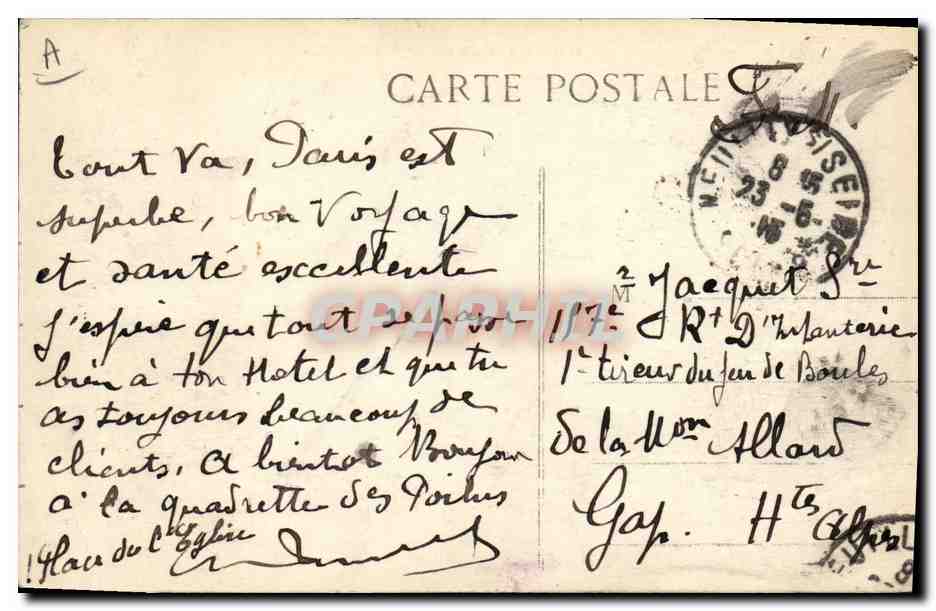 A
CARTE POSTALE
Tout va, Paris est
superbe, bon Voyage
et santé excellente
j'espère que tout se passe
bien à ton Hotel et que tu
as toujours beaucoup de
clients, a bientot Bonjour
à la quadrette des Poilus
Place de l'Eglise
NEUILLY S/SEINE
8 15
23 -5-
CPAPHIL
M
Jacquet Sre
157e Rt D'Infanterie
1e tireur du jeu de Boules
de la Mon Allard
Gap. Htes Alpes